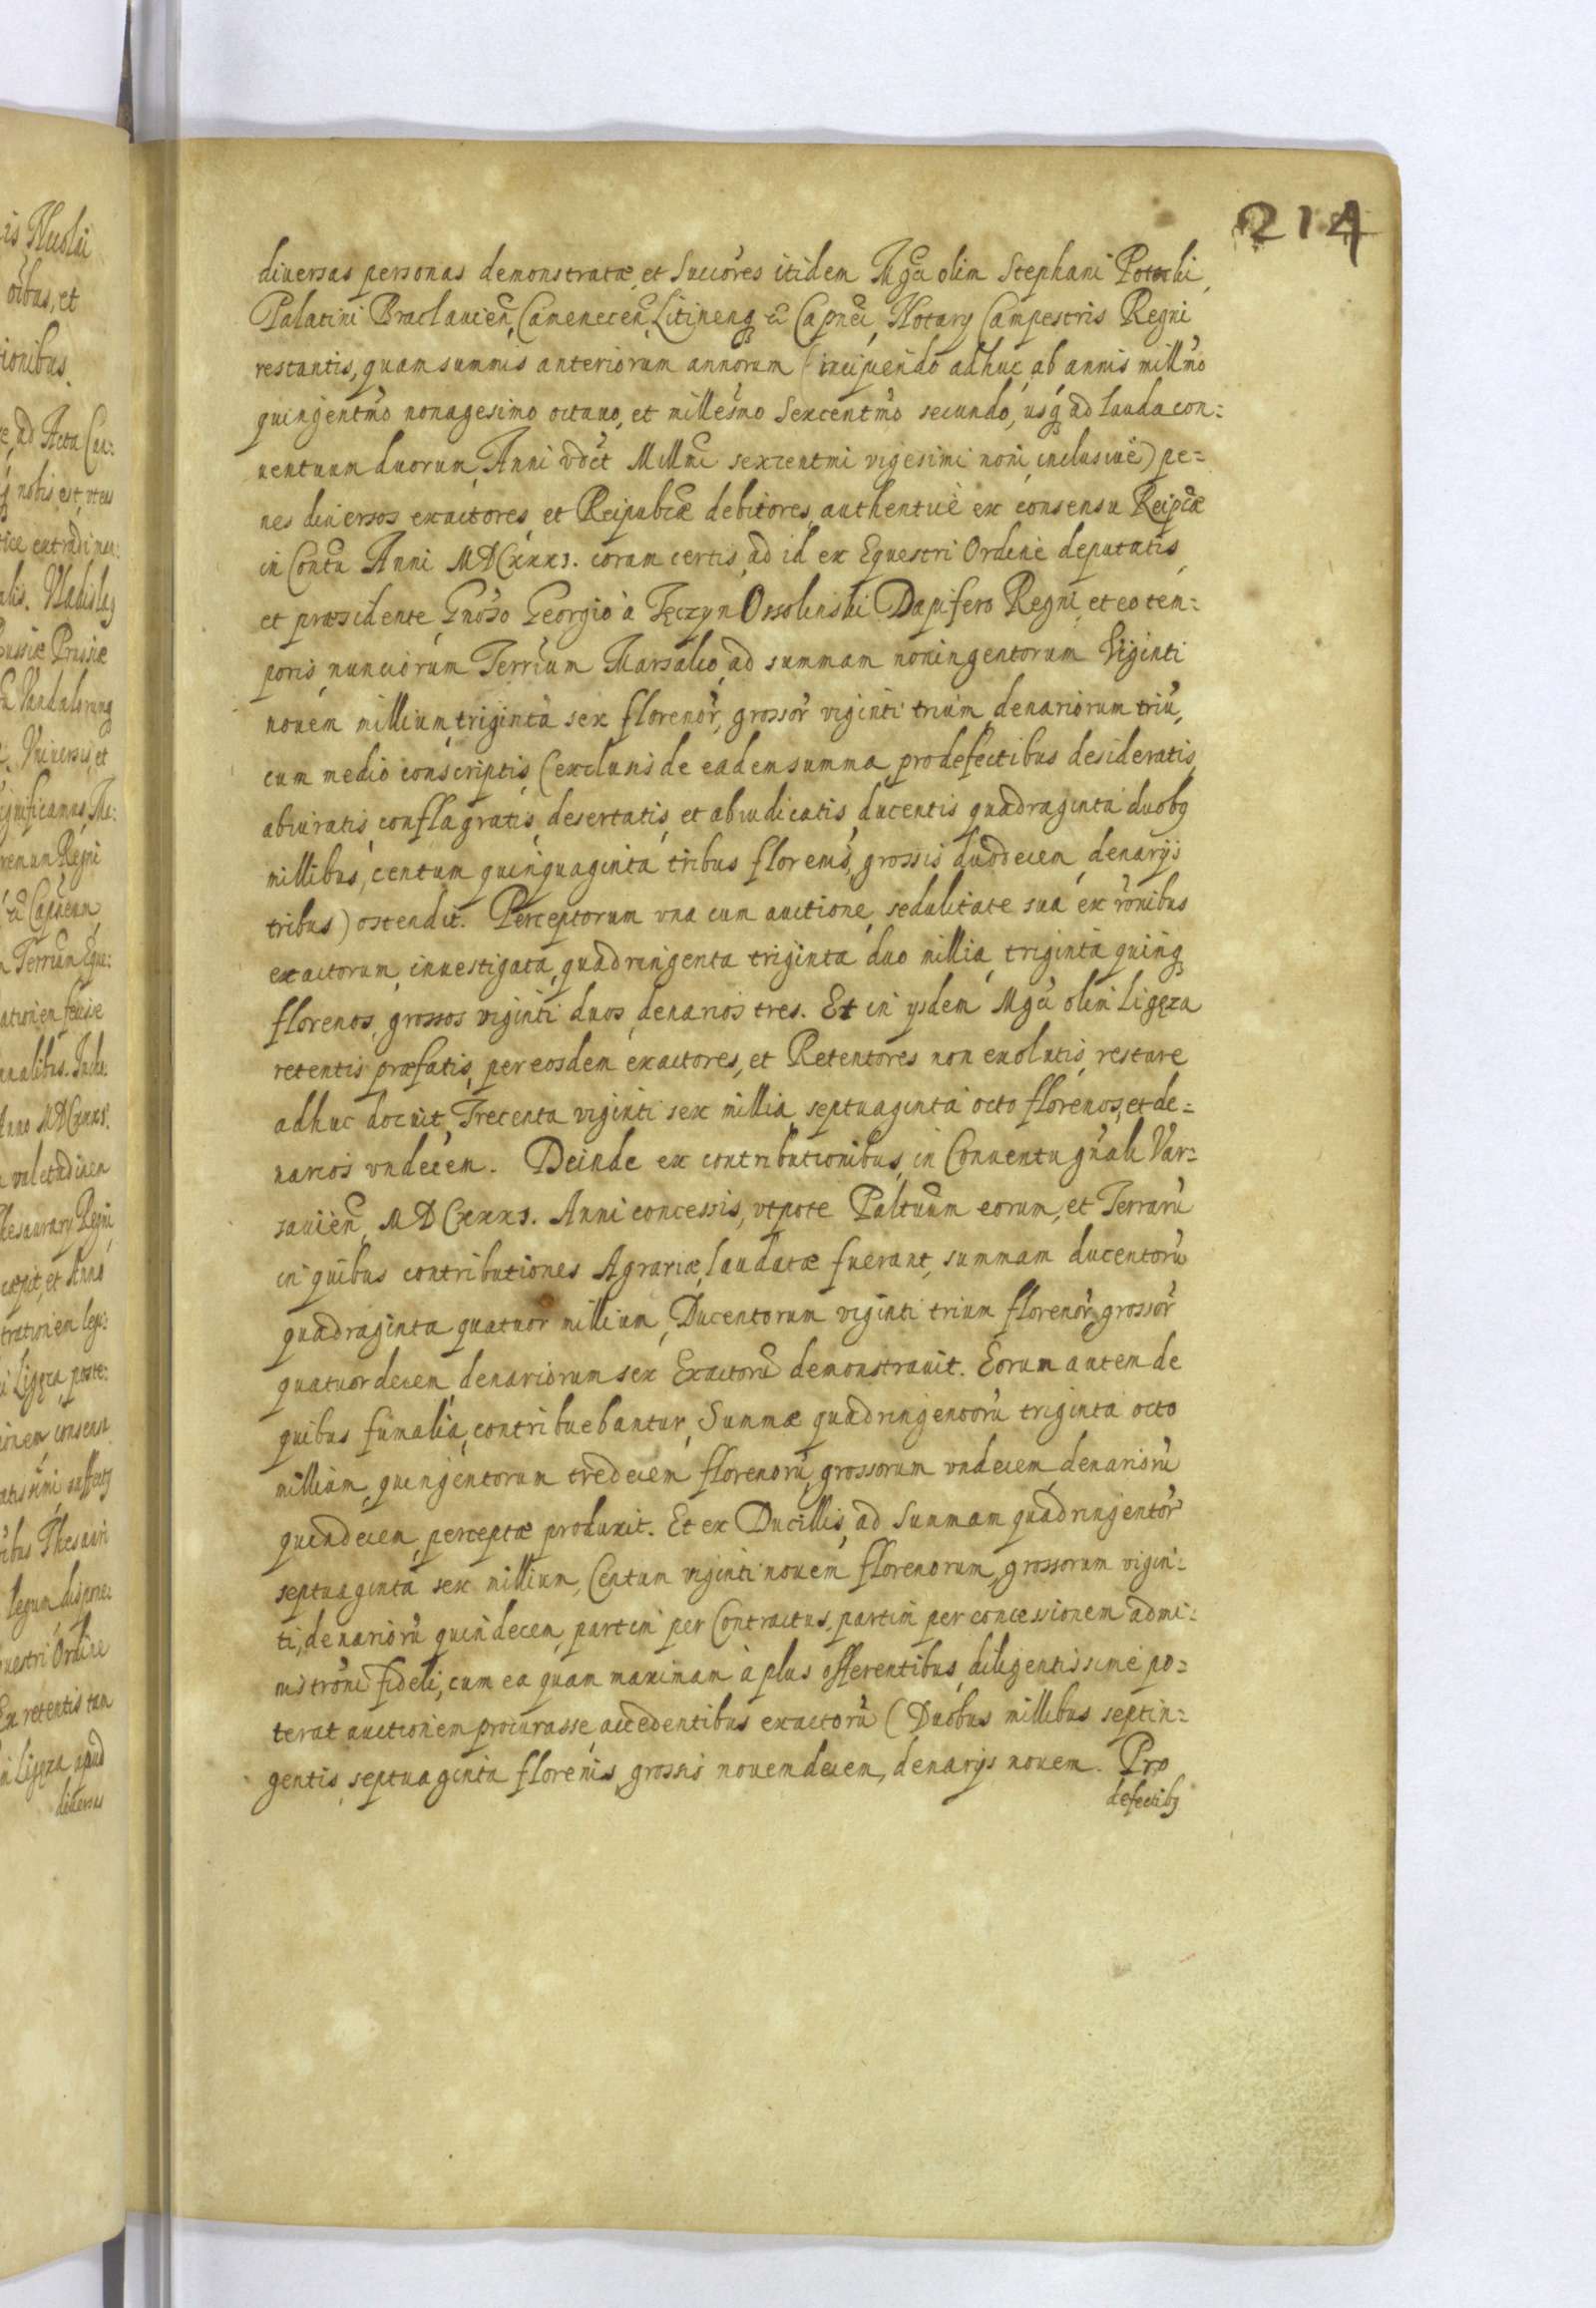 214
diuersas personas demonstratæ, et Succores itidem Mgci olim Stephani Potocki,
Palatini Braclauien, Camenecen, Litinenq &c Capnei, Notarÿ Campestris Regni
restantis, quam summis anteriorum annorum (incipiendo adhuc ab annis millmo
quingentmo nonagesimo octauo, et millesmo Sexcentmo secundo, usq ad lauda con=
uentuum duorum, Anni vdct Millmi sexcentmi vigesimi noni inclusiué) pe=
nes diuersos exactores et Reipubcæ debitores, authenticè ex consensu Reipcæ
in Contu Anni MDCxxx1. coram certis, ad id ex Equestri Ordine deputatis,
et præsidente Gnoso Georgio à Tęczyn Ossolinski Dapifero Regni, et eo tem=
poris nunciorum Terrium Marsalco, ad summam noningentorum Viginti
nouem millium, triginta sex florenor, grossor viginti trium, denariorum triu,
cum medio conscriptis (exclusis de eadem summa pro defectibus desideratis,
abiuratis, conflagratis, desertatis, et abiudicatis, ducentis quadraginta duobq
millibus, centum quinquaginta tribus florenis, grossis duodecem, denarÿs
tribus) ostendit. Perceptorum vna cum auctione, sedulitate sua ex ronibus
exactorum, inuestigata, quadringenta triginta duo millia, triginta quinq
florenos, grossos viginti duos, denarios tres. Et in ÿsdem Mgci olim Ligęza
retentis præfatis, per eosdem exactores, et Retentores non exolutis, restare
adhuc docuit, Trecenta viginti sex millia, septuaginta octo florenos, et de=
narios vndecem. Deinde ex contributionibus, in Conuentu gnali Var=
sauien, MDCxxx1. Anni concessis, vtpote Paltuum eorum, et Terraru
in quibus contributiones Agrariæ, laudatæ fuerant, summam ducentoru
quadraginta quatuor millium, Ducentorum viginti trium florenor, grossor
quatuordecem, denariorum sex Exactoru demonstrauit. Eorum autem de
quibus fumalia, contribuebantur, Summæ quadringentoru triginta octo
millium, quingentorum tredecem florenoru, grossorum vndecem, denarioru
quindecem, perceptæ produxit. Et ex Ducillis, ad Summam quadringentor
septuaginta sex millium, Centum viginti nouem florenorum, grossorum vigin=
ti, denarioru quindecem, partim per Contractus, partim per concessionem admi=
nistroni fideli, cum ea quam maximam à plus offerentibus, diligentissimè po=
terat auctionem procurasse, accedentibus exactoru (Duobus millibus septin=
gentis, septuaginta florenis, grossis nouemdecem, denarÿs nouem. Pro
defectibq